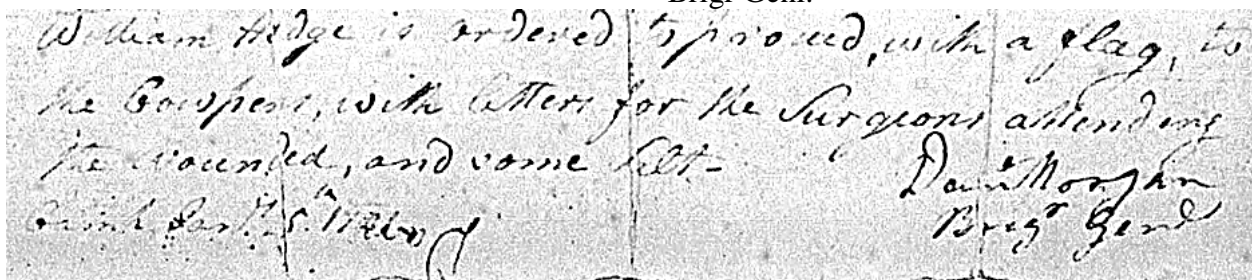 Brigr Genl.
William Hedge is ordered to proceed, with a flag, to
the Cowpens, with letters for the Surgeons attending
the wounded, and some Salt -
Danl Morgan
Camp Jany
Brigr Genl